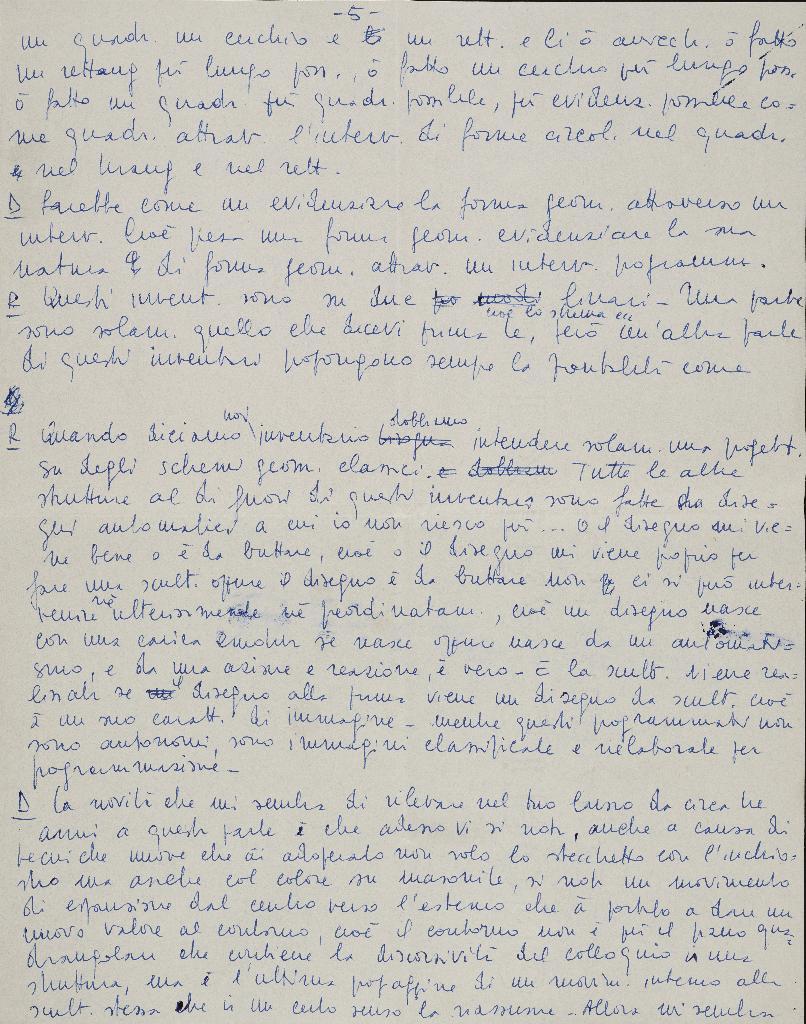 -5-
un quadr. un cerchio e un rett. e li ò arrech. ò fatto
un rettang più lungo poss., ò fatto un cerchio più lungo poss.
ò fatto un quadr. più quadr. possibile, più evidenz. possibile co-
me quadr. attrav. l'interv. di forme circol. nel quadr.
e nel triang e nel rett.
D Sarebbe come un evidenziare la forma geom. attraverso un
interv. Cioè presa una forma geom. evidenziare la sua
natura di forma geom. attrav. un interv. programm.
R Questi invent. sono su due binari - Una parte
cioè lo schema
sono solam. quello che dicevi prima te, però un'altra parte
di questi inventari propongono sempre la come
R Quando diciamo noi inventario bisogna dobbiamo intendere solam. una progett.
su degli schemi geom. classici. e dobbiamo Tutte le altre
strutture al di fuori di questi inventari sono fatte da dise-
gni automatici a cui io non riesco più... O il disegno mi vie-
ne bene o è da buttare, cioè o il disegno mi viene proprio per
fare una scult. oppure il disegno è da buttare non ci si può inter-
venire né ulteriormente né preordinatam., cioè un disegno nasce
con una carica se nasce oppure nasce da un automati-
smo, e da una azione e reazione, è vero - E la scult. viene rea-
lizzata se il disegno alla prima viene un disegno da scult. cioè
à un suo caratt. di immagine - mentre questi programmati non
sono autonomi, sono immagini classificate e rielaborate per
programmazione -
D La novità che mi sembra di rilevare nel tuo lavoro da circa tre
anni a questa parte è che adesso vi si nota, anche a causa di
tecniche nuove che ài adoperato non solo lo stecchetto con l'inchio-
stro ma anche col colore su masonite, si nota un movimento
di espansione dal centro verso l'esterno che à portato a dare un
nuovo valore al contorno, cioè il contorno non è più il piano qua-
drangolare che contiene la discorsività del colloquio in una
struttura, ma è l'ultima propaggine di un movim. interno alla
scult. stessa che in un certo senso la riassume - Allora mi sembra